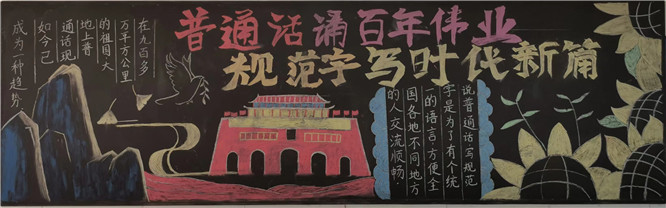 普通话诵百年伟业
规范字写时代新篇
在九百多
万平方公里
的祖国大
地上普
通话现
如今已
成为一种趋势
说普通话写规范
字是为了有个统
一的语言,方便全
国各地不同地方
的人交流顺畅.